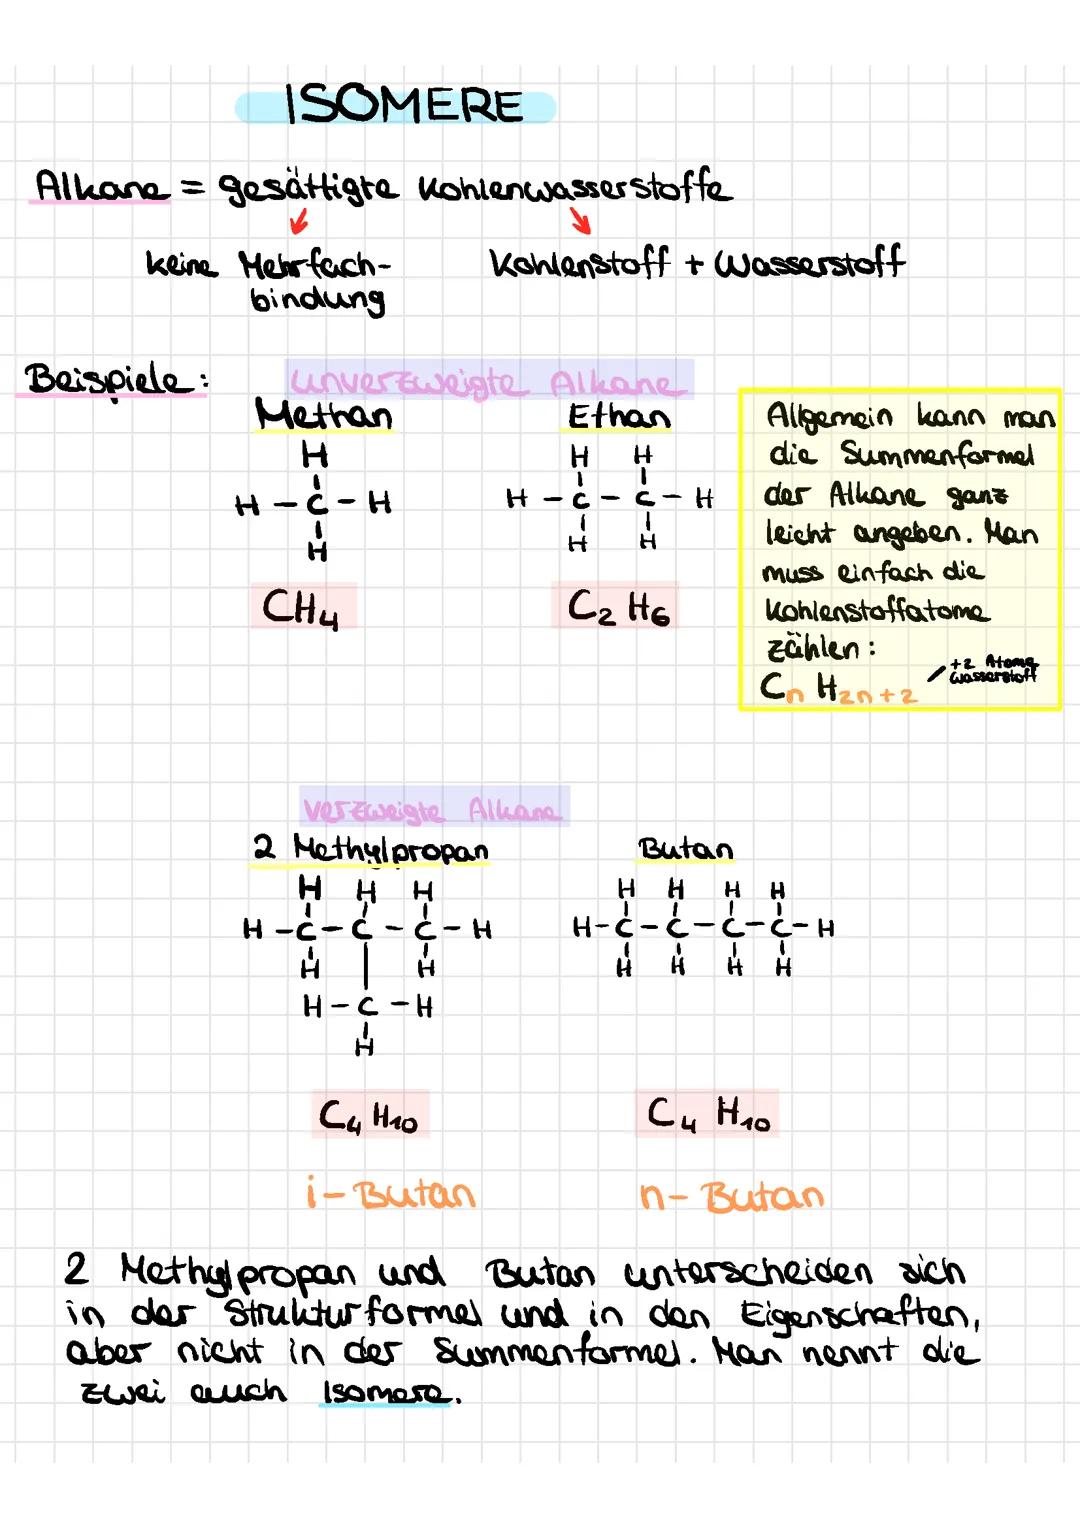 ISOMERE
Alkane = gesättigte Kohlenwasserstoffe
keine Mehrfach-
bindung
Kohlenstoff + Wasserstoff
Beispiele:
unverzweigte Alkane
Methan
H
H - C - H
H
CH4
Ethan
H H
H - C - C - H
H H
C2 H6
Allgemein kann man
die Summenformel
der Alkane ganz
leicht angeben. Man
muss einfach die
Kohlenstoffatome
zählen:
+2 Atome
Wasserstoff
Cn H2n+2
verzweigte Alkane
2 Methylpropan
H H H
H - C - C - C - H
H H
H - C - H
H
C4 H10
i- Butan
Butan
H H H H
H - C - C - C - C - H
H H H H
C4 H10
n- Butan
2 Methylpropan und Butan unterscheiden sich
in der Strukturformel und in den Eigenschaften,
aber nicht in der Summenformel. Man nennt die
zwei auch Isomere.